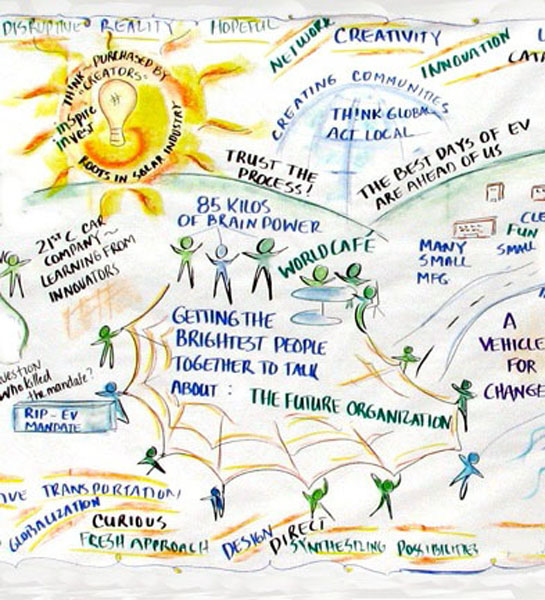 DISRUPTIVE REALITY HOPEFUL
NETWORK
CREATIVITY
INNOVATION
THINK - PURCHASED BY
"CREATORS"
inspire
invest
ROOTS IN SOLAR INDUSTRY
CREATING COMMUNITIES
TH!NK GLOBAL
ACT LOCAL
TRUST THE
PROCESS!
THE BEST DAYS OF EV
ARE AHEAD OF US
85 KILOS
OF BRAIN POWER
21ST C CAR
COMPANY ~
LEARNING FROM
INNOVATORS
WORLD CAFÉ
FUN
MANY
SMALL
MFG
SMALL
GETTING THE
BRIGHTEST PEOPLE
TOGETHER TO TALK
ABOUT : THE FUTURE ORGANIZATION
A
VEHICLE
FOR
CHANGE
who killed
the mandate?
RIP - EV
MANDATE
TRANSPORTATION
GLOBALIZATION
CURIOUS
FRESH APPROACH
DESIGN
DIRECT
SYNTHESIZING POSSIBILITIES